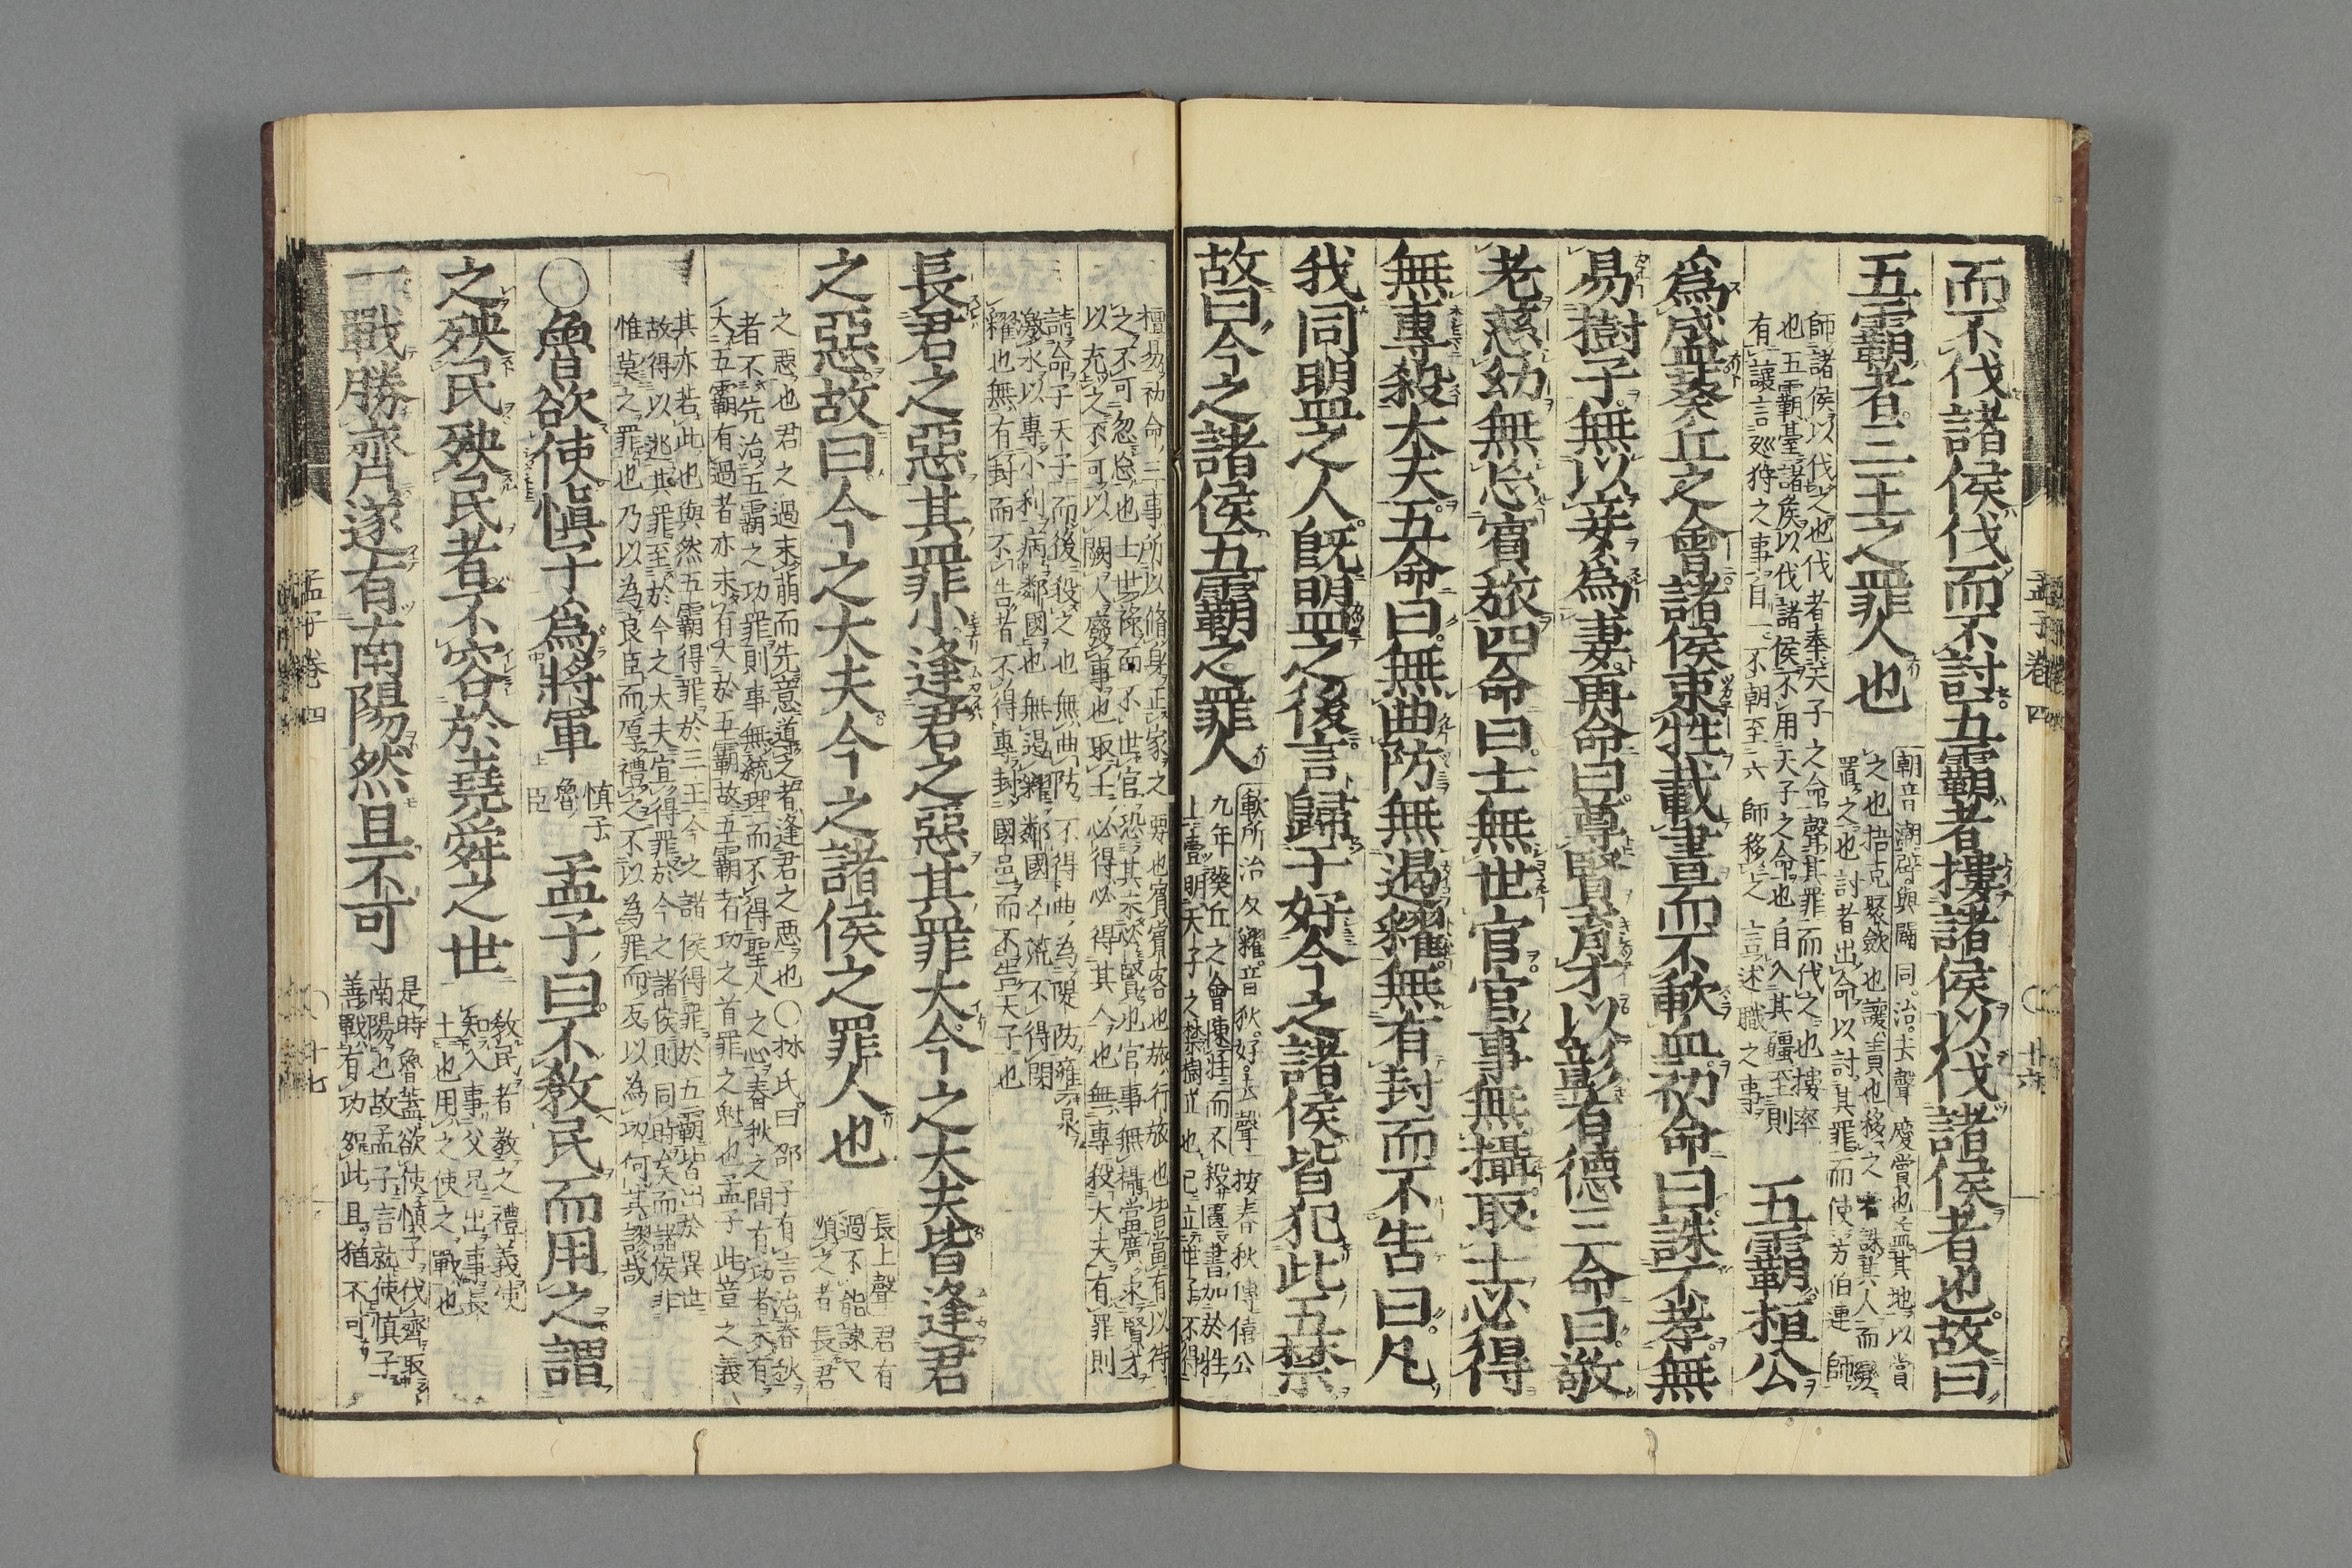 而不伐諸侯伐而不討五霸者摟諸侯以伐諸侯者也故曰
五霸者三王之罪人也
朝音潮辟與闢同治去聲
慶賞也益其地以賞
之也掊克聚斂也讓責也移之者誅其人而變
置之也討者出命以討其罪而使方伯連帥
師諸侯以伐之也伐者奉天子之命聲其罪而伐之也摟牽
也五霸牽諸侯以伐諸侯不用天子之命也自入其疆至則
有讓言巡狩之事自一不朝至六師移之言述職之事
五霸桓公
爲盛葵丘之會諸侯束牲載書而不歃血初命曰誅不孝無
易樹子無以妾爲妻再命曰尊賢育才以彰有德三命曰敬
老慈幼無忘賓旅四命曰士無世官官事無攝取士必得
無專殺大夫五命曰無曲防無遏糴無有封而不告曰凡
我同盟之人既盟之後言歸于好今之諸侯皆犯此五禁
故曰今之諸侯五霸之罪人
歃所洽反糴音狄好去聲
按春秋傳僖公
九年葵丘之會陳牲而不殺讀書加於牲
上壹明天子之禁樹立也已立世子不得
擅易初命三事所以脩身正家之要也賓賓客也旅行旅也皆當有以待
之不可忽忘也士世祿而不世官恐其未必賢也官事無攝當廣求賢才
以充之不可以闕人廢事也取士必得必得其人也無專殺大夫有罪則
請命于天子而後殺之也無曲防不得曲為隄防壅泉
激水以專小利病鄰國也無遏糴鄰國凶荒不得閉
糴也無有封而不告者不得專封國邑而不告天子也
長君之惡其罪小逢君之惡其罪大今之大夫皆逢君
之惡故曰今之大夫今之諸侯之罪人也
長上聲
君有
過不能諫又
順之者長君
之惡也君之過未萌而先意道之者逢君之惡也○林氏曰邵子有言治春秋
者不先治五霸之功罪則事無統理而不得聖人之心春秋之間有功者未有
大五霸有過者亦未有大於五霸故五霸者功之首罪之魁也孟子此章之義
其亦若此也與然五霸得罪於三王今之諸侯得罪於五霸皆出於異世
故得以逃其罪至於今之大夫宜得罪於今之諸侯則同時矣而諸侯非
惟莫之罪也乃以為良臣而厚禮之不以為罪而反以為功何其謬哉
○魯欲使愼子爲將軍
慎子
魯
臣
孟子曰不敎民而用之謂
之殃民殃民者不容於堯舜之世
敎民者敎之禮義使
知入事父兄出事長
上也用之使之戰也
一戰勝齊遂有南陽然且不可
是時魯蓋欲使慎子伐齊取
南陽也故孟子言就使慎子
善戰有功如此且猶不可
孟子卷四
廿六
孟子卷四
廿七